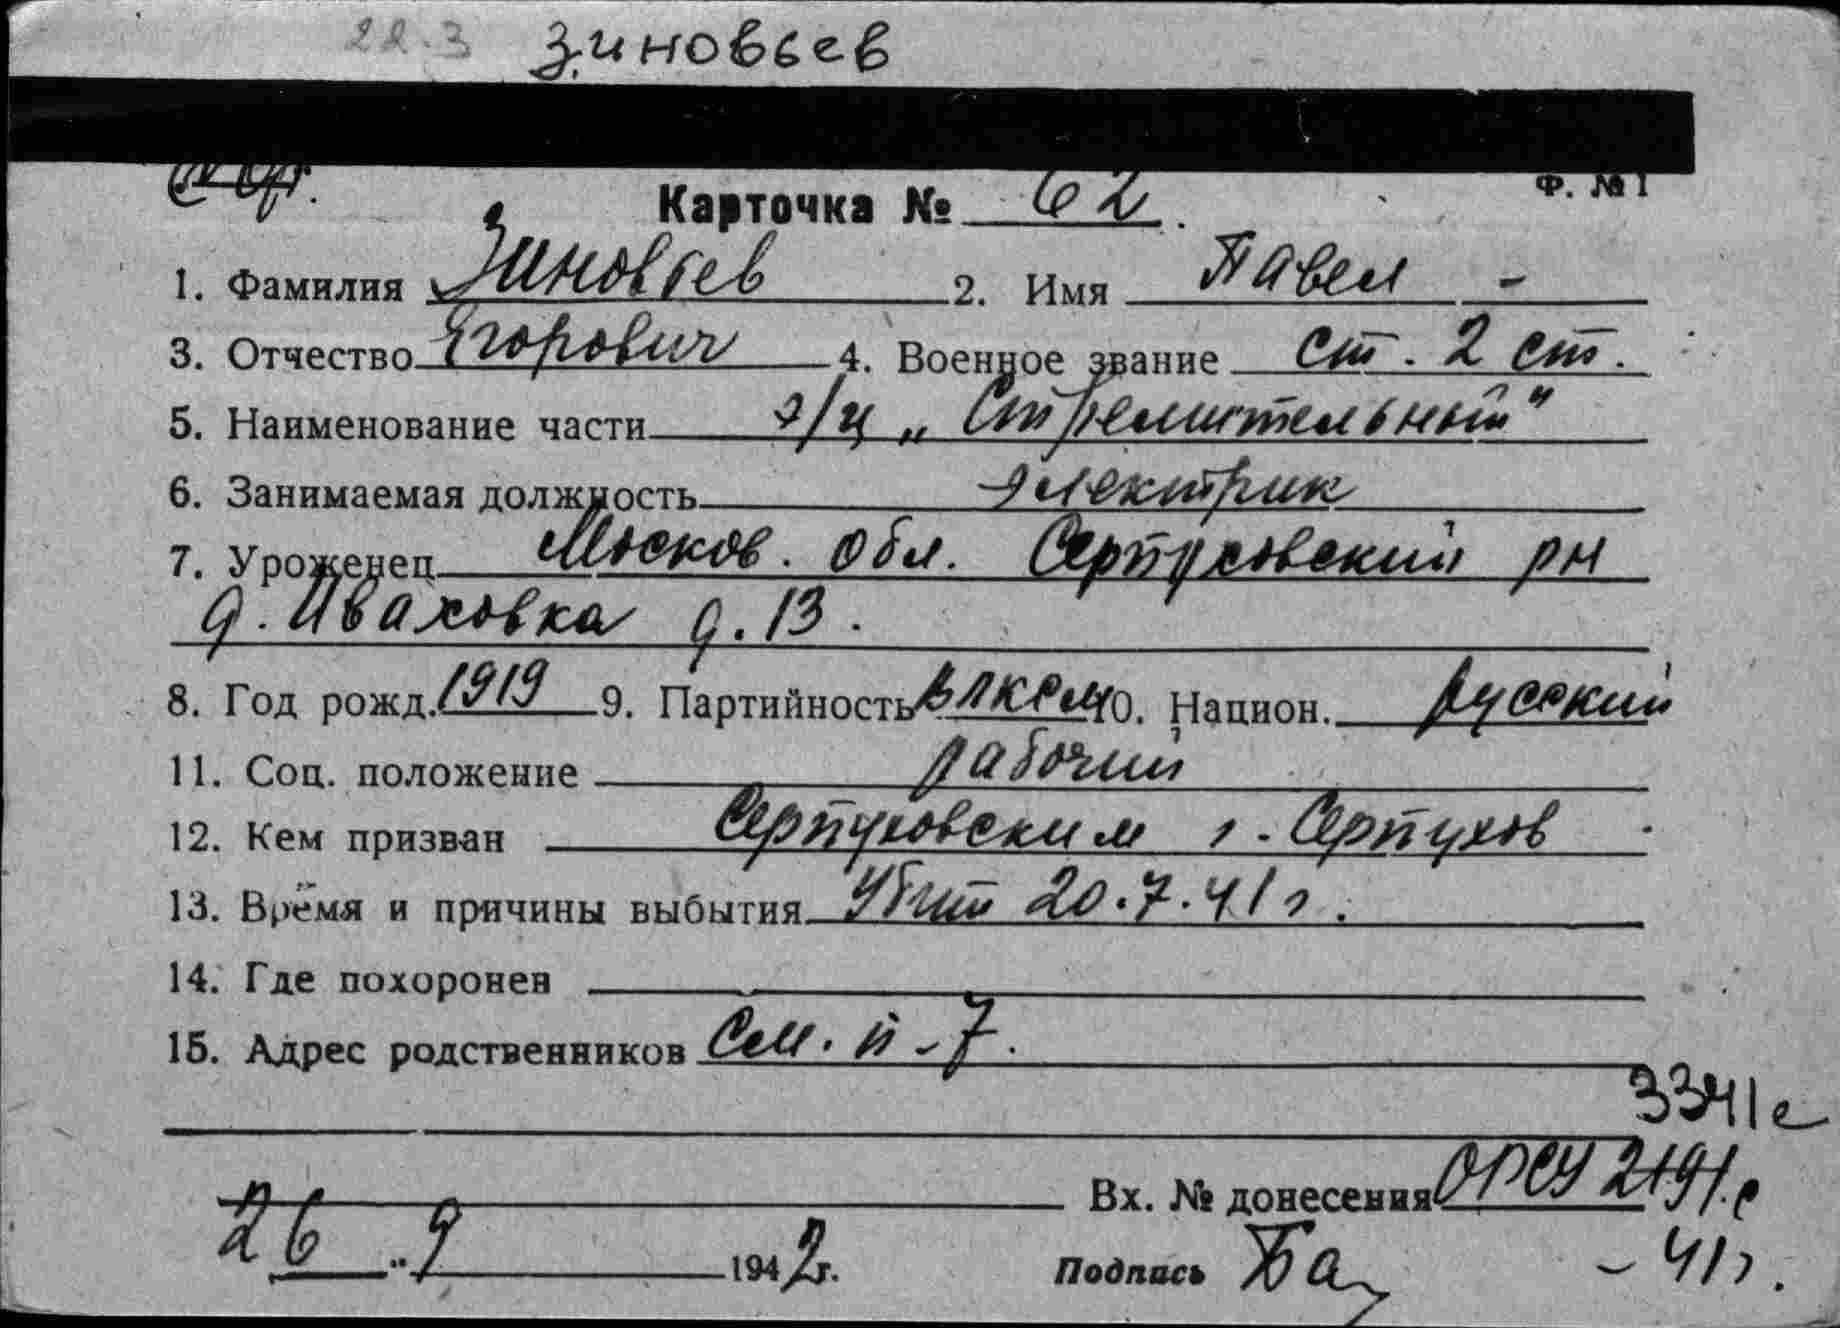 22.3 Зиновьев
Карточка № 62.
Ф. № 1
1. Фамилия Зиновьев 2. Имя Павел -
3. Отчество Егорович 4. Военное звание ст. 2 ст.
5. Наименование части э/ц „Стремительный"
6. Занимаемая должность электрик
7. Уроженец Москов. обл. Серпуховский рн
д. Иваховка д. 13.
8. Год рожд. 1919 9. Партийность ВЛКСМ 10. Национ. русский
11. Соц. положение рабочий
12. Кем призван Серпуховским г. Серпухов
13. Время и причины выбытия Убит 20.7.41 г.
14. Где похоронен
15. Адрес родственников См. п-7.
3341с
Вх. № донесения ОРСУ 2191.с
26 " 9 1942г. Подпись Ба - 41г.